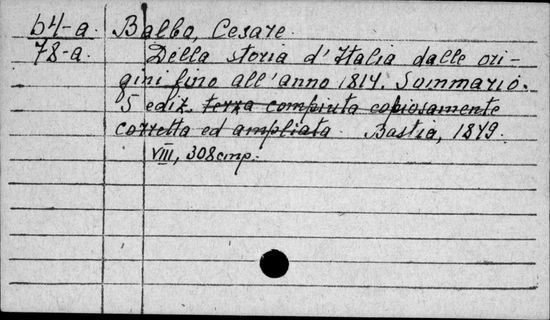 64-a. Balbo, Cesare.
78-a. Della storia d'Italia dalle ori-
gini fino all'anno 1814. Sommario.
5 ediz. terza compiuta copiosamente
corretta ed ampliata. Bastia, 1849.
VIII, 308 cmp.